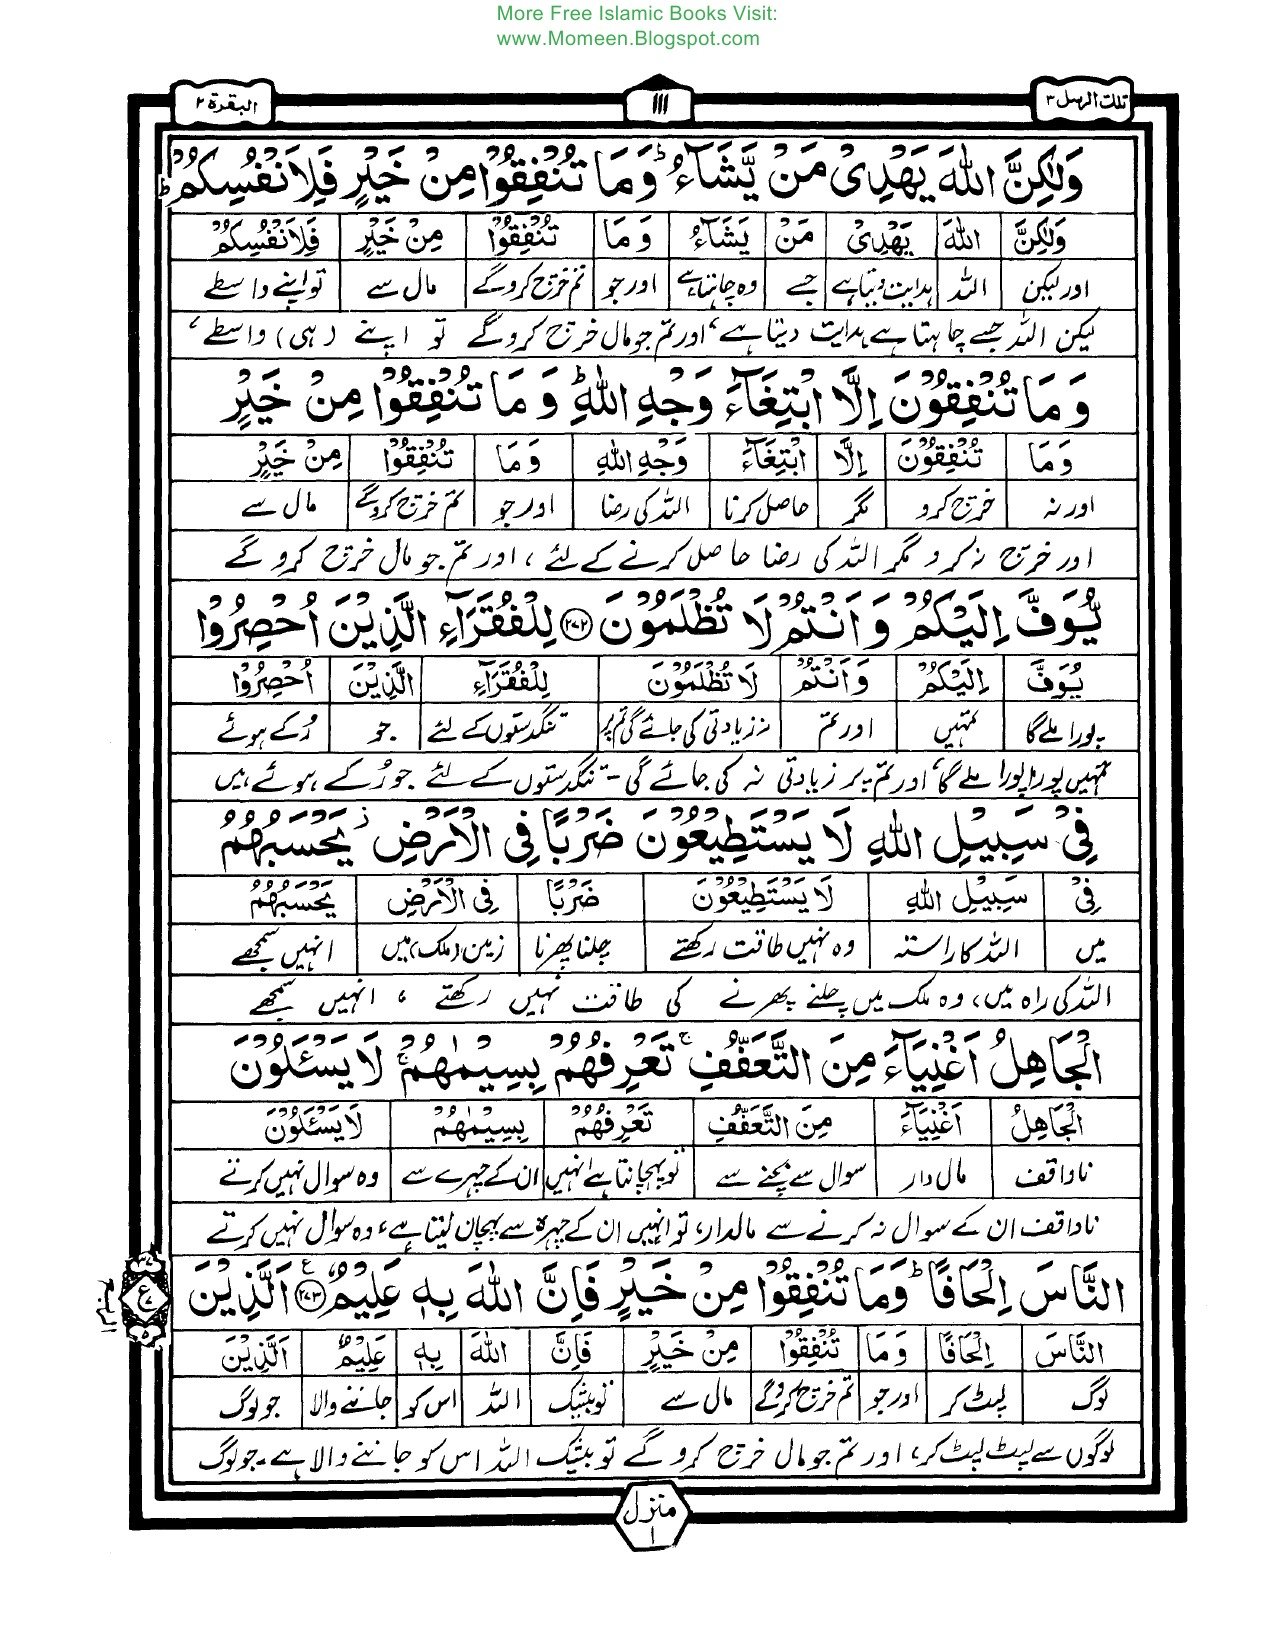 More Free Islamic Books Visit:
www.Momeen.Blogspot.com
تلك الرسل ۳ ۱۱۱ البقرة ۲
وَلٰكِنَّ اللّٰهَ يَهْدِىْ مَنْ يَّشَآءُ ؕ وَمَا تُنْفِقُوْا مِنْ خَيْرٍ فَلِاَنْفُسِكُمْ ؕ
وَلٰكِنَّ اللّٰهَ يَهْدِىْ مَنْ يَشَآءُ وَمَا تُنْفِقُوْا مِنْ خَيْرٍ فَلِاَنْفُسِكُمْ
اور لیکن اللہ ہدایت دیتا ہے جسے وہ چاہتا ہے اور جو تم خرچ کرو گے مال سے تو اپنے واسطے
لیکن اللہ جسے چاہتا ہے ہدایت دیتا ہے، اور تم جو مال خرچ کرو گے تو اپنے (ہی) واسطے،
وَمَا تُنْفِقُوْنَ اِلَّا ابْتِغَآءَ وَجْهِ اللّٰهِ ؕ وَمَا تُنْفِقُوْا مِنْ خَيْرٍ
وَمَا تُنْفِقُوْنَ اِلَّا ابْتِغَآءَ وَجْهِ اللّٰهِ وَمَا تُنْفِقُوْا مِنْ خَيْرٍ
اور نہ خرچ کرو مگر حاصل کرنا اللہ کی رضا اور جو تم خرچ کرو گے مال سے
اور خرچ نہ کرو مگر اللہ کی رضا حاصل کرنے کے لئے، اور تم جو مال خرچ کرو گے
يُّوَفَّ اِلَيْكُمْ وَاَنْتُمْ لَا تُظْلَمُوْنَ ﴿۲۷۲﴾ لِلْفُقَرَآءِ الَّذِيْنَ اُحْصِرُوْا
يُوَفَّ اِلَيْكُمْ وَاَنْتُمْ لَا تُظْلَمُوْنَ لِلْفُقَرَآءِ الَّذِيْنَ اُحْصِرُوْا
پورا ملے گا تمہیں اور تم نہ زیادتی کی جائے گی تم پر تنگدستوں کے لئے جو رُکے ہوئے
تمہیں پورا پورا ملے گا، اور تم پر زیادتی نہ کی جائے گی - تنگدستوں کے لئے جو رُکے ہوئے ہیں
فِىْ سَبِيْلِ اللّٰهِ لَا يَسْتَطِيْعُوْنَ ضَرْبًا فِى الْاَرْضِ ز يَحْسَبُهُمُ
فِىْ سَبِيْلِ اللّٰهِ لَا يَسْتَطِيْعُوْنَ ضَرْبًا فِى الْاَرْضِ يَحْسَبُهُمُ
میں اللہ کا راستہ وہ نہیں طاقت رکھتے چلنا پھرنا زمین (ملک) میں انہیں سمجھے
اللہ کی راہ میں، وہ ملک میں چلنے پھرنے کی طاقت نہیں رکھتے ، انہیں سمجھے
الْجَاهِلُ اَغْنِيَآءَ مِنَ التَّعَفُّفِ ۚ تَعْرِفُهُمْ بِسِيْمٰهُمْ ۚ لَا يَسْـَٔلُوْنَ
الْجَاهِلُ اَغْنِيَآءَ مِنَ التَّعَفُّفِ تَعْرِفُهُمْ بِسِيْمٰهُمْ لَا يَسْـَٔلُوْنَ
ناواقف مال دار سوال سے بچنے سے تو پہچانتا ہے انہیں ان کے چہرے سے وہ سوال نہیں کرتے
ناواقف ان کے سوال نہ کرنے سے مالدار، تو انہیں ان کے چہرہ سے پہچان لیتا ہے، وہ سوال نہیں کرتے
النَّاسَ اِلْحَافًا ؕ وَمَا تُنْفِقُوْا مِنْ خَيْرٍ فَاِنَّ اللّٰهَ بِهٖ عَلِيْمٌ ﴿۲۷۳﴾ ع اَلَّذِيْنَ
النَّاسَ اِلْحَافًا وَمَا تُنْفِقُوْا مِنْ خَيْرٍ فَاِنَّ اللّٰهَ بِهٖ عَلِيْمٌ اَلَّذِيْنَ
لوگ لپٹ کر اور جو تم خرچ کرو گے مال سے تو بیشک اللہ اس کو جاننے والا جو لوگ
لوگوں سے لپٹ لپٹ کر، اور تم جو مال خرچ کرو گے تو بیشک اللہ اس کو جاننے والا ہے - جو لوگ
۳۷
ع
۵
منزل
۱